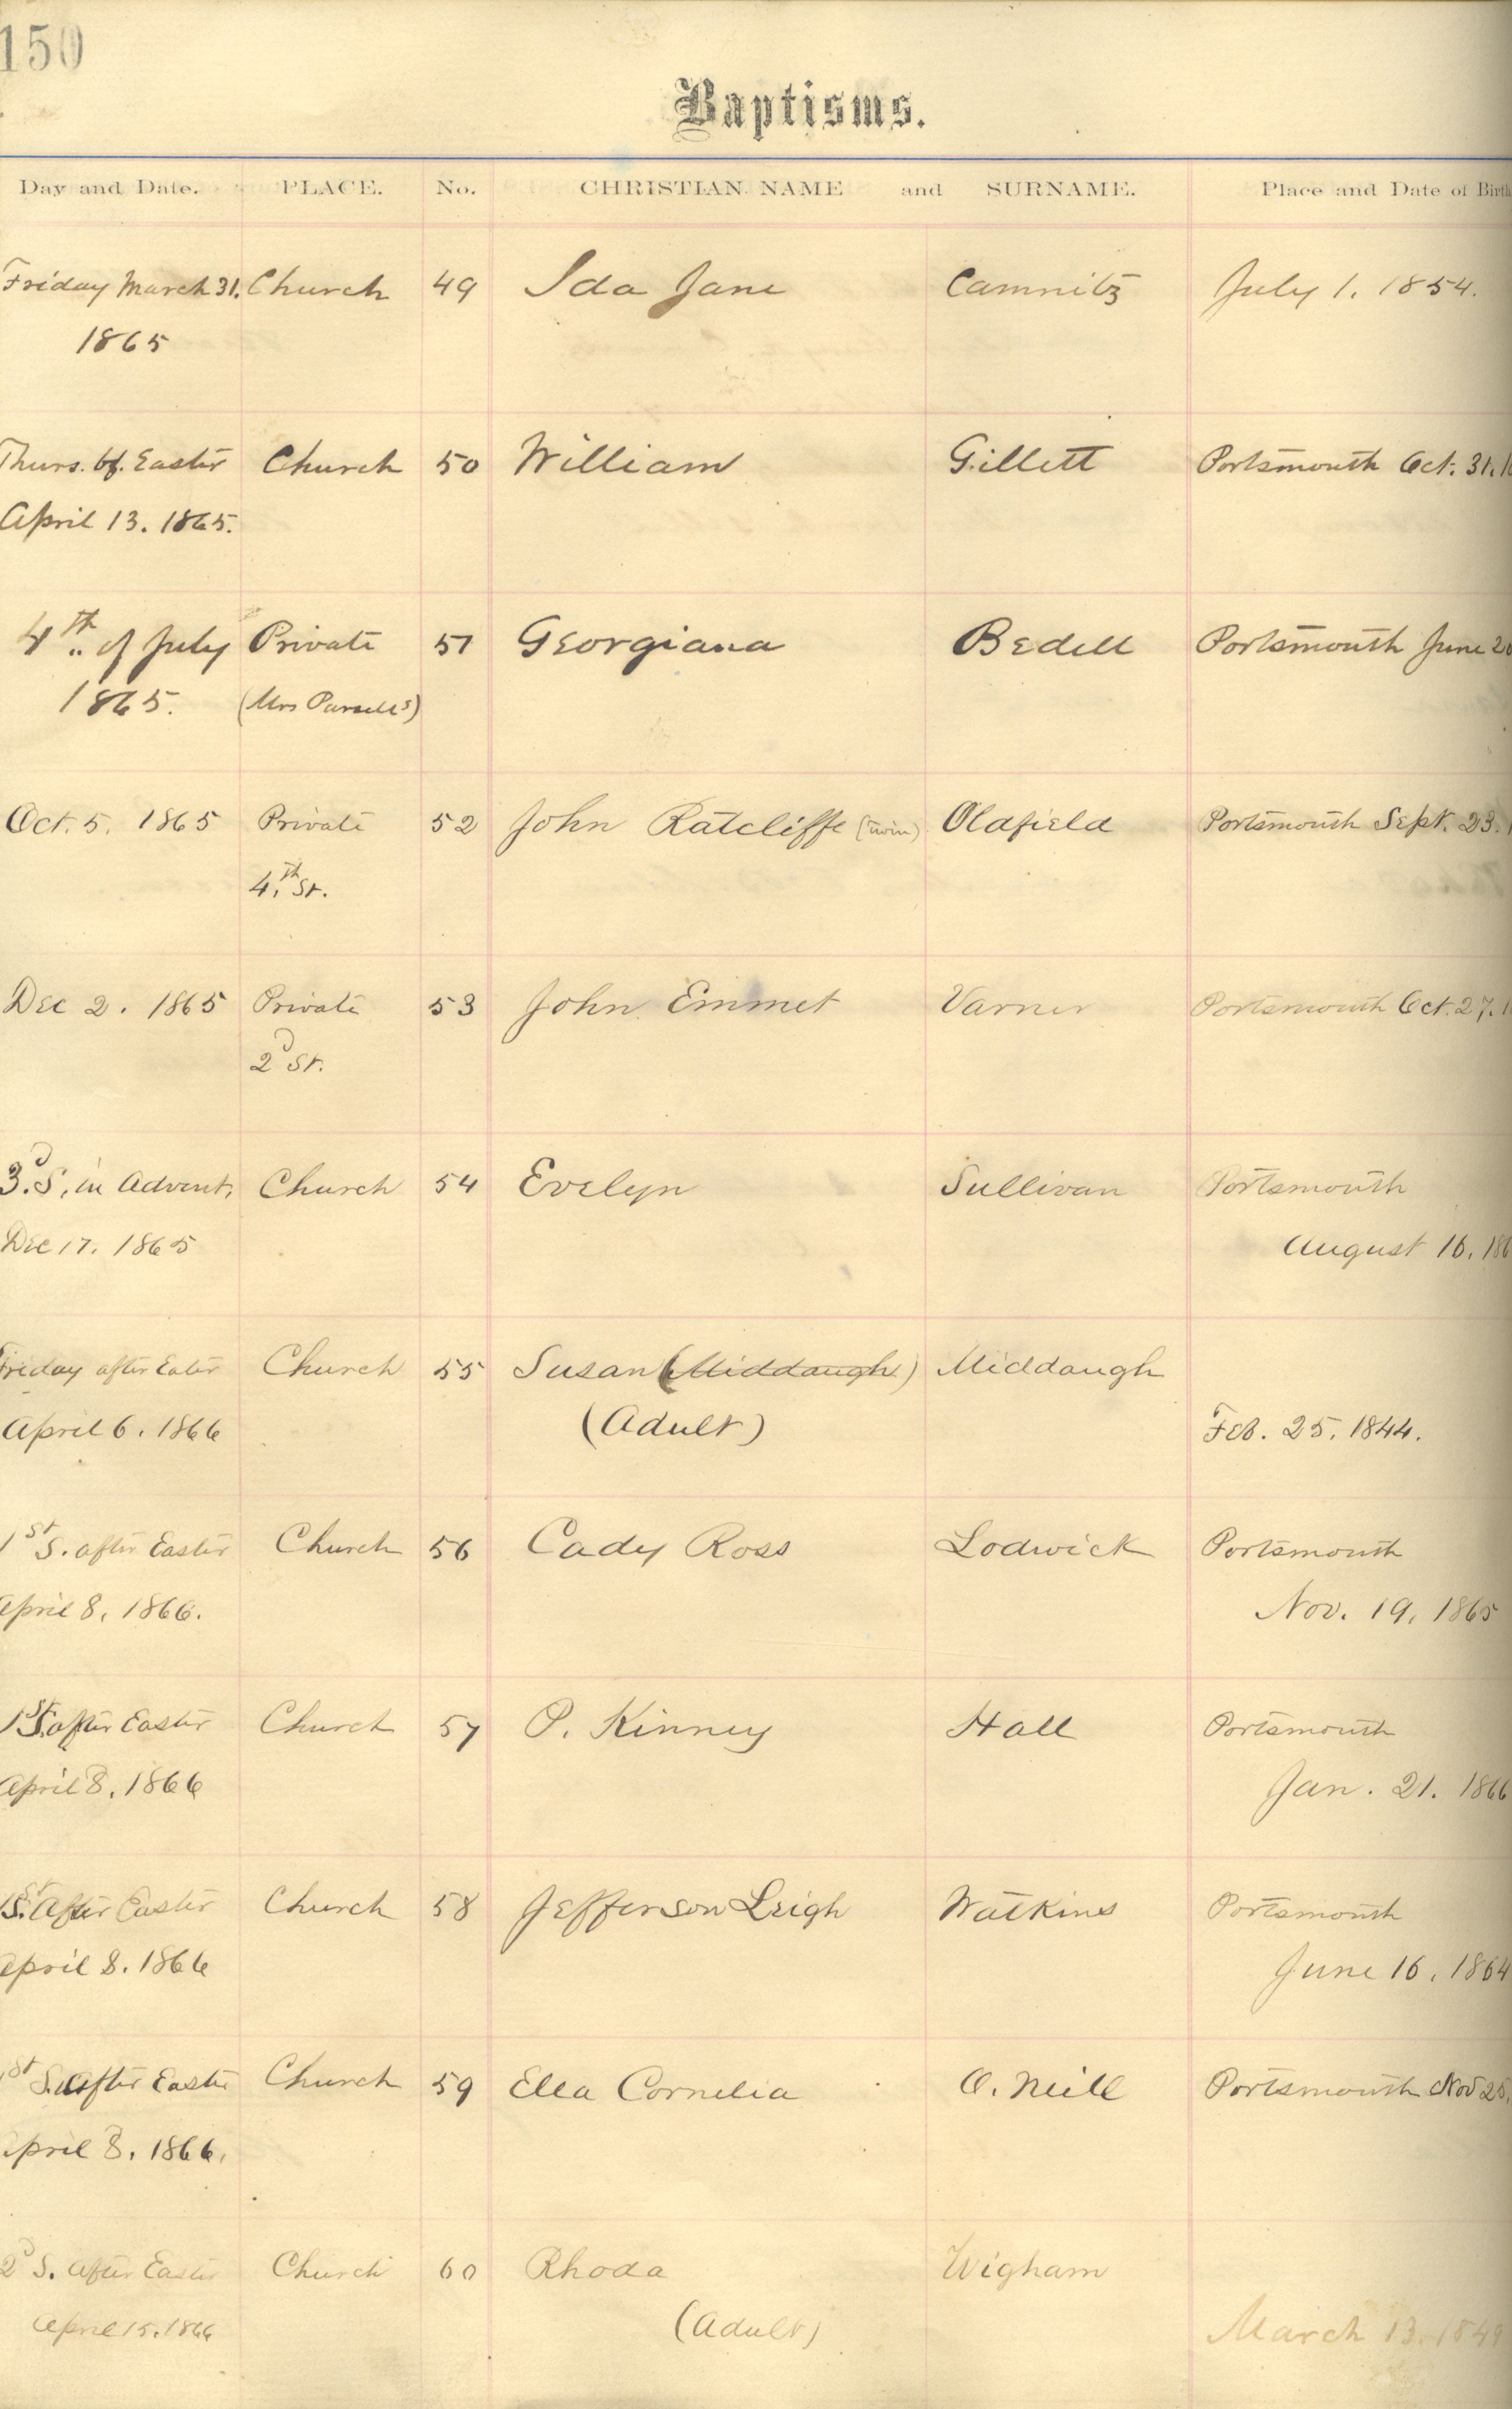 150
Baptisms.
Day and Date. PLACE. No. CHRISTIAN NAME and SURNAME. Place and Date of Birth
Friday March 31. Church 49 Ida Jane Camnitz July 1. 1854.
1865
Thurs. bf. Easter Church 50 William Gillett Portsmouth Oct. 31.
April 13. 1865.
4th of July Private 51 Georgiana Bedell Portsmouth June
1865. (Mrs Pursell's)
Oct. 5. 1865 Private 52 John Ratcliffe (twin) Oldfield Portsmouth Sept. 23.
4th St.
Dec 2. 1865 Private 53 John Emmet Varner Portsmouth Oct. 27.
2d St.
3d. S. in Advent, Church 54 Evelyn Sullivan Portsmouth
Dec 17. 1865 August 16. 186
Friday after Eater Church 55 Susan (Middaugh) Middaugh
April 6. 1866 (Adult) Feb. 25. 1844.
1st S. after Easter Church 56 Cady Ross Lodwick Portsmouth
April 8, 1866. Nov. 19, 1865
1st S. after Easter Church 57 P. Kinney Hall Portsmouth
April 8. 1866 Jan. 21. 1866
1st S. After Easter Church 58 Jefferson Leigh Watkins Portsmouth
April 8. 1866 June 16. 1864
1st S. After Easter Church 59 Ella Cornelia O. Neill Portsmouth Nov 25.
April 8. 1866.
2d S. After Easter Church 60 Rhoda Wigham
April 15. 1866 (Adult) March 13. 1849